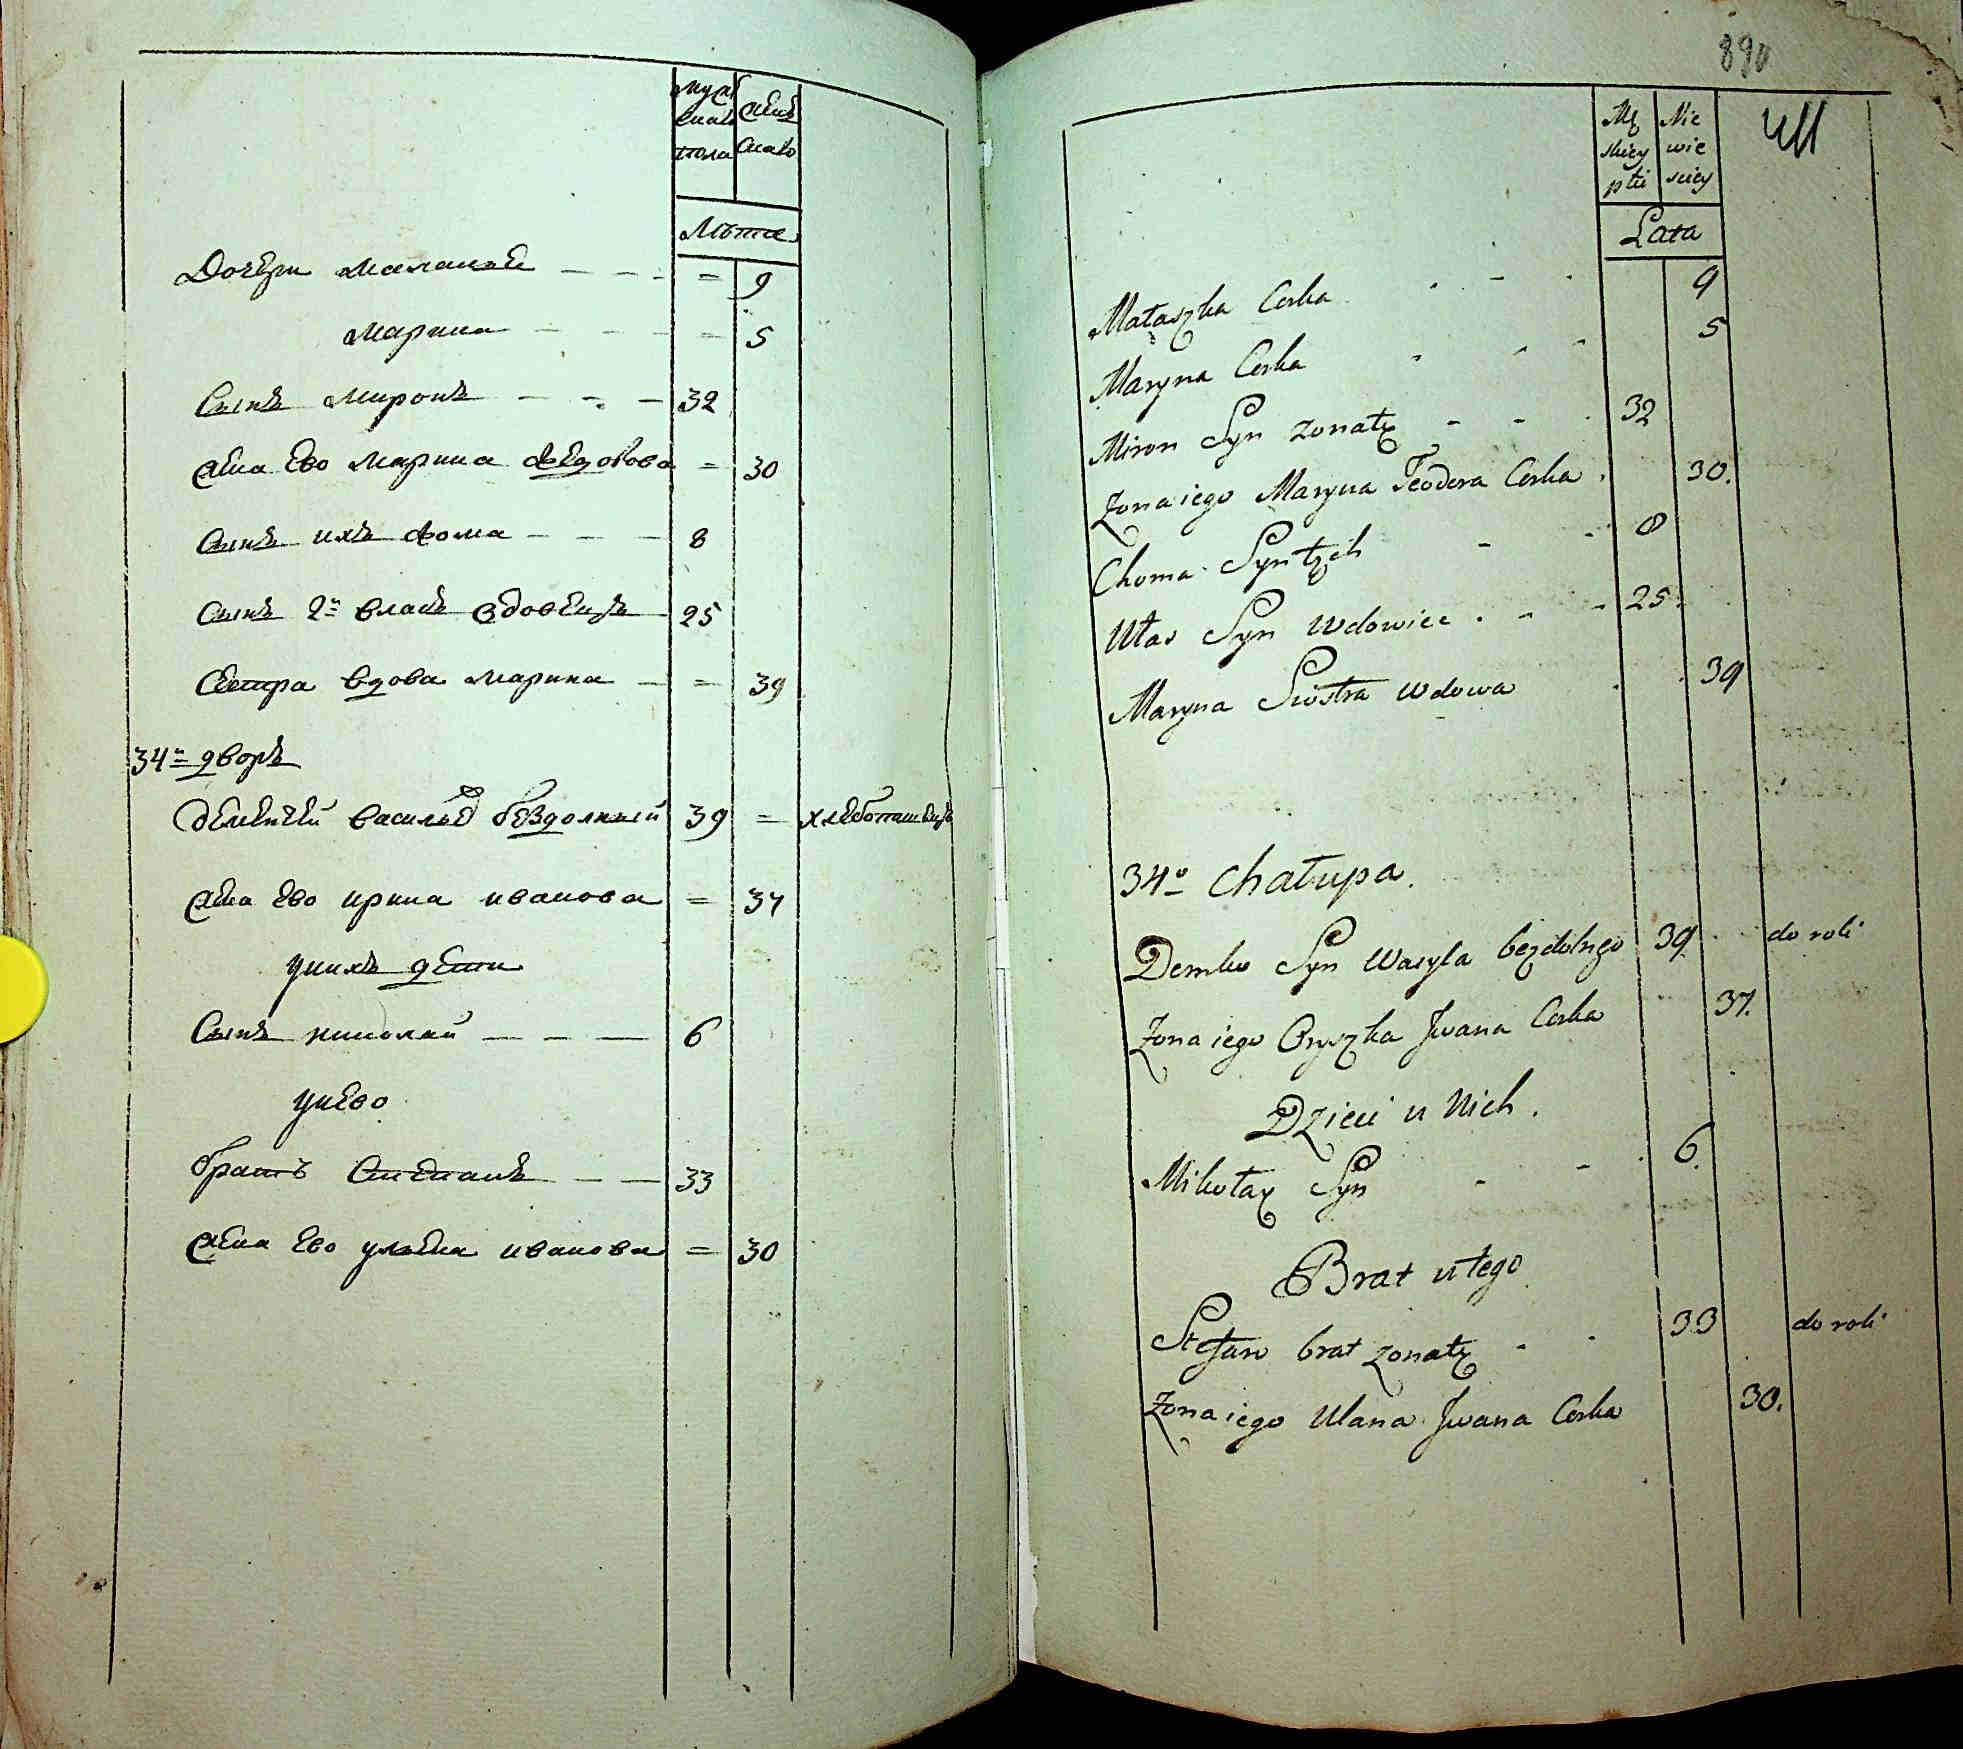 муж
Женъ
скаго
пола скаго
Лѣта
Дочери маланья - - - = 9
марина - - - = 5
Сынъ миронъ - - - 32
Жена ево марина Федорова = 30
Сынъ ихъ Фома - - - 8
Сынъ 2й власъ вдовецъ - 25
Сестра вдова марина - = 39
34й дворъ
Деменътей васильевъ бездолный 39 = хлебопашецъ
Жена ево ирина иванова = 37
у нихъ дети
Сынъ николай - - - 6
у нево
братъ Степанъ - - 33
Жена ево ульяна иванова = 30
890
Mę Nie
skiey wie
płci sciey
Lata
Małaszka Corka 9
Maryna Corka 5
Miron Syn żonaty - - - 32
Żona iego Maryna Teodora Corka 30.
Choma Syn tych - - 8
Ułas Syn Wdowiec - - - 25.
Maryna Siostra Wdowa 39
34o Chałupa.
Demko Syn Wasyla bezdolnego 39 do roli
Żona iego Oryszka Jwana Corka 37.
Dzieci u Nich.
Mikołay Syn - - 6.
Brat u tego
Stefan brat żonaty - - 33 do roli
Żona iego Ulana Jwana Corka 30.